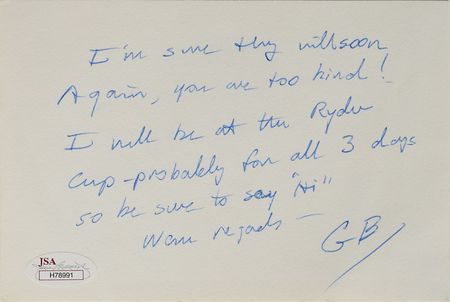 I'm sure they will soon
Again, you are too kind!
I will be at the Ryder
Cup-probably for all 3 days
so be sure to say "Hi"
Warm regards —
GB
JSA
H78991